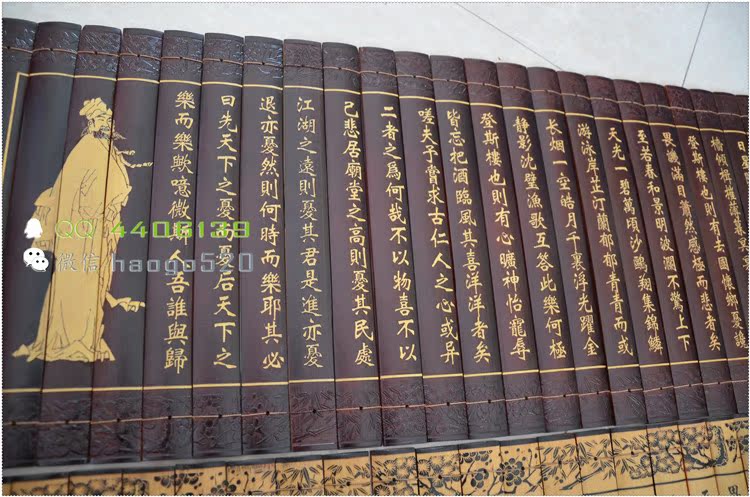 檣傾楫摧薄暮冥
登斯樓也則有去國懷鄉憂讒
畏譏滿目蕭然感極而悲者矣
至若春和景明波瀾不驚上下
天光一碧萬頃沙鷗翔集錦鱗
游泳岸芷汀蘭郁郁青青而或
长烟一空皓月千裏浮光躍金
静影沈璧漁歌互答此樂何極
登斯樓也則有心曠神怡寵辱
皆忘把酒臨風其喜洋洋者矣
嗟夫予嘗求古仁人之心或异
二者之爲何哉不以物喜不以
己悲居廟堂之高則憂其民處
江湖之遠則憂其君是進亦憂
退亦憂然則何時而樂耶其必
曰先天下之憂而憂后天下之
樂而樂歟噫微斯人吾誰與歸
QQ 4406139
微信 haogo520